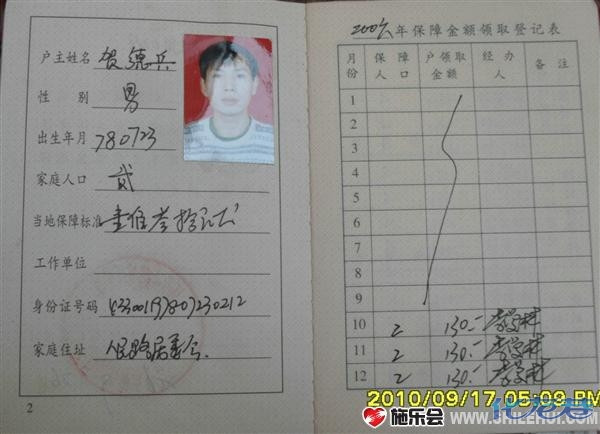 户主姓名 贺德兵
性别 男
出生年月 780723
家庭人口 贰
当地保障标准 壹佰叁拾元
工作单位
身份证号码 433001197807230212
家庭住址 人民路居委会
2
年保障金额领取登记表
月份 保障人口 户领取金额 经办人 备注
1
2
3
4
5
6
7
8
9
10 2 130.-
11 2 130.-
12 2 130.-
2010/09/17 05:09 PM
施乐会
www.SHILEHUI.COM